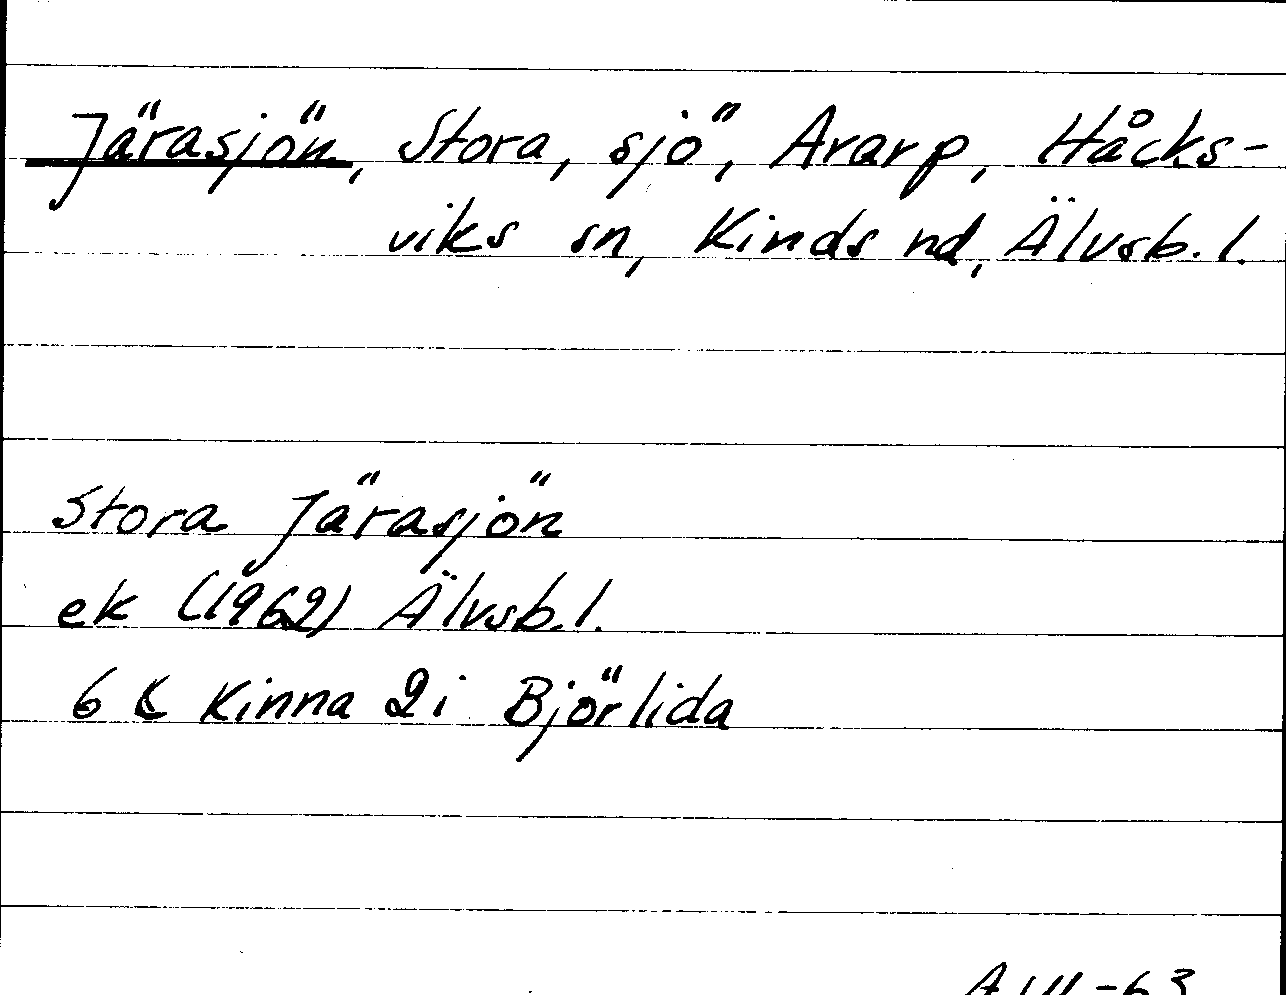 Järasjön, Stora, sjö, Ararp, Håcks-
viks sn, Kinds hd, Älvsb. l.
Stora Järasjön
ek (1962) Älvsb. l.
6 C Kinna 2i Björlida